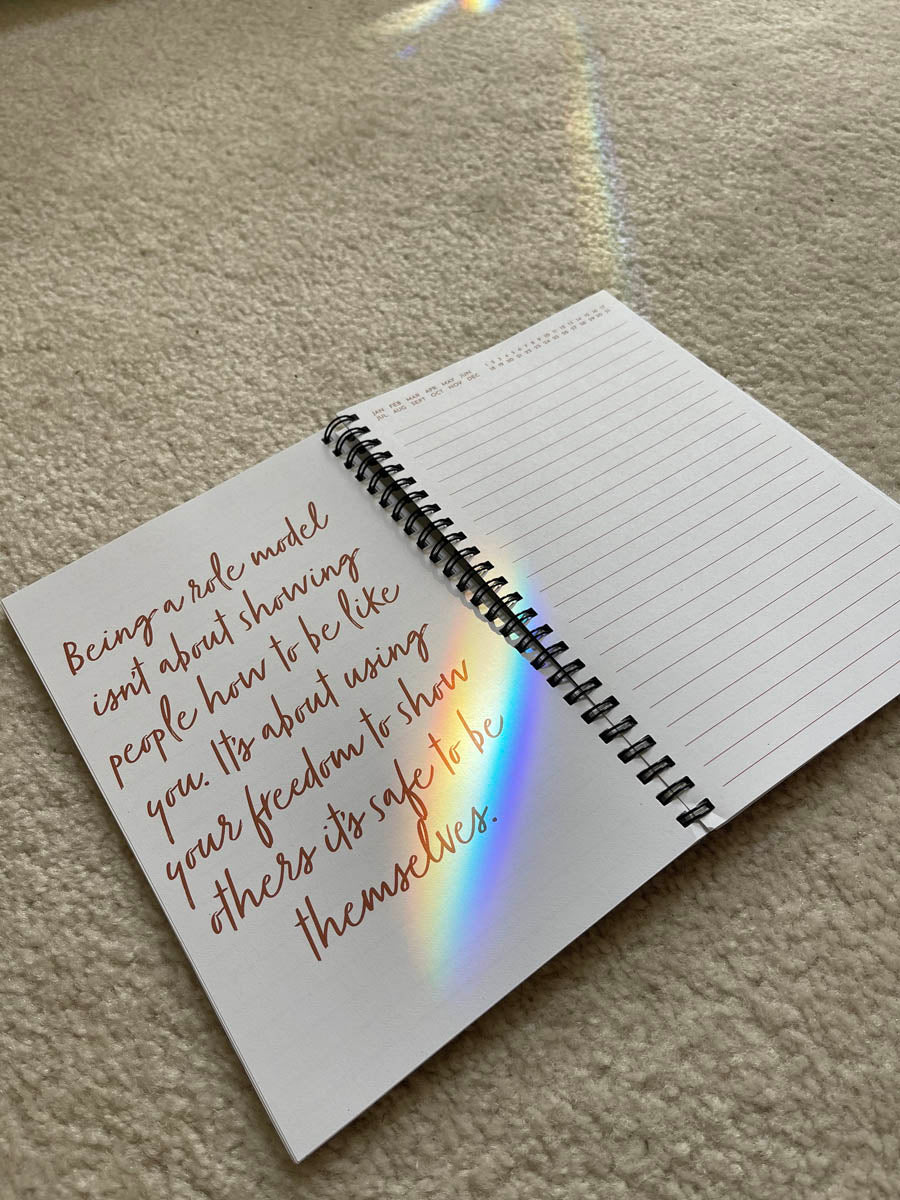 Being a role model
isn't about showing
people how to be like
you. It's about using
your freedom to show
others it's safe to be
themselves.
JAN FEB MAR APR MAY JUN 1 2 3 4 5 6 7 8 9 10 11 12 13 14 15 16 17
JUL AUG SEPT OCT NOV DEC 18 19 20 21 22 23 24 25 26 27 28 29 30 31